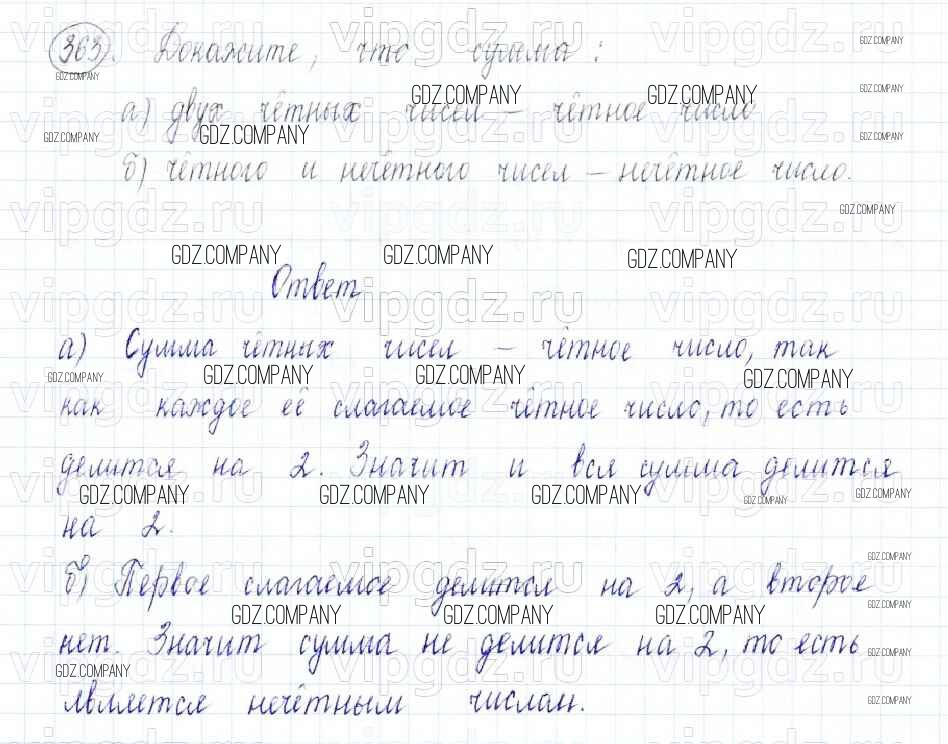 363. Докажите, что сумма:
а) двух чётных чисел – чётное число
б) чётного и нечётного чисел – нечётное число.
Ответ
а) Сумма чётных чисел – чётное число, так
как каждое её слагаемое чётное число, то есть
делится на 2. Значит и вся сумма делится
на 2.
б) Первое слагаемое делится на 2, а второе
нет. Значит сумма не делится на 2, то есть
является нечётным числан.
vipgdz.ru
GDZ.COMPANY